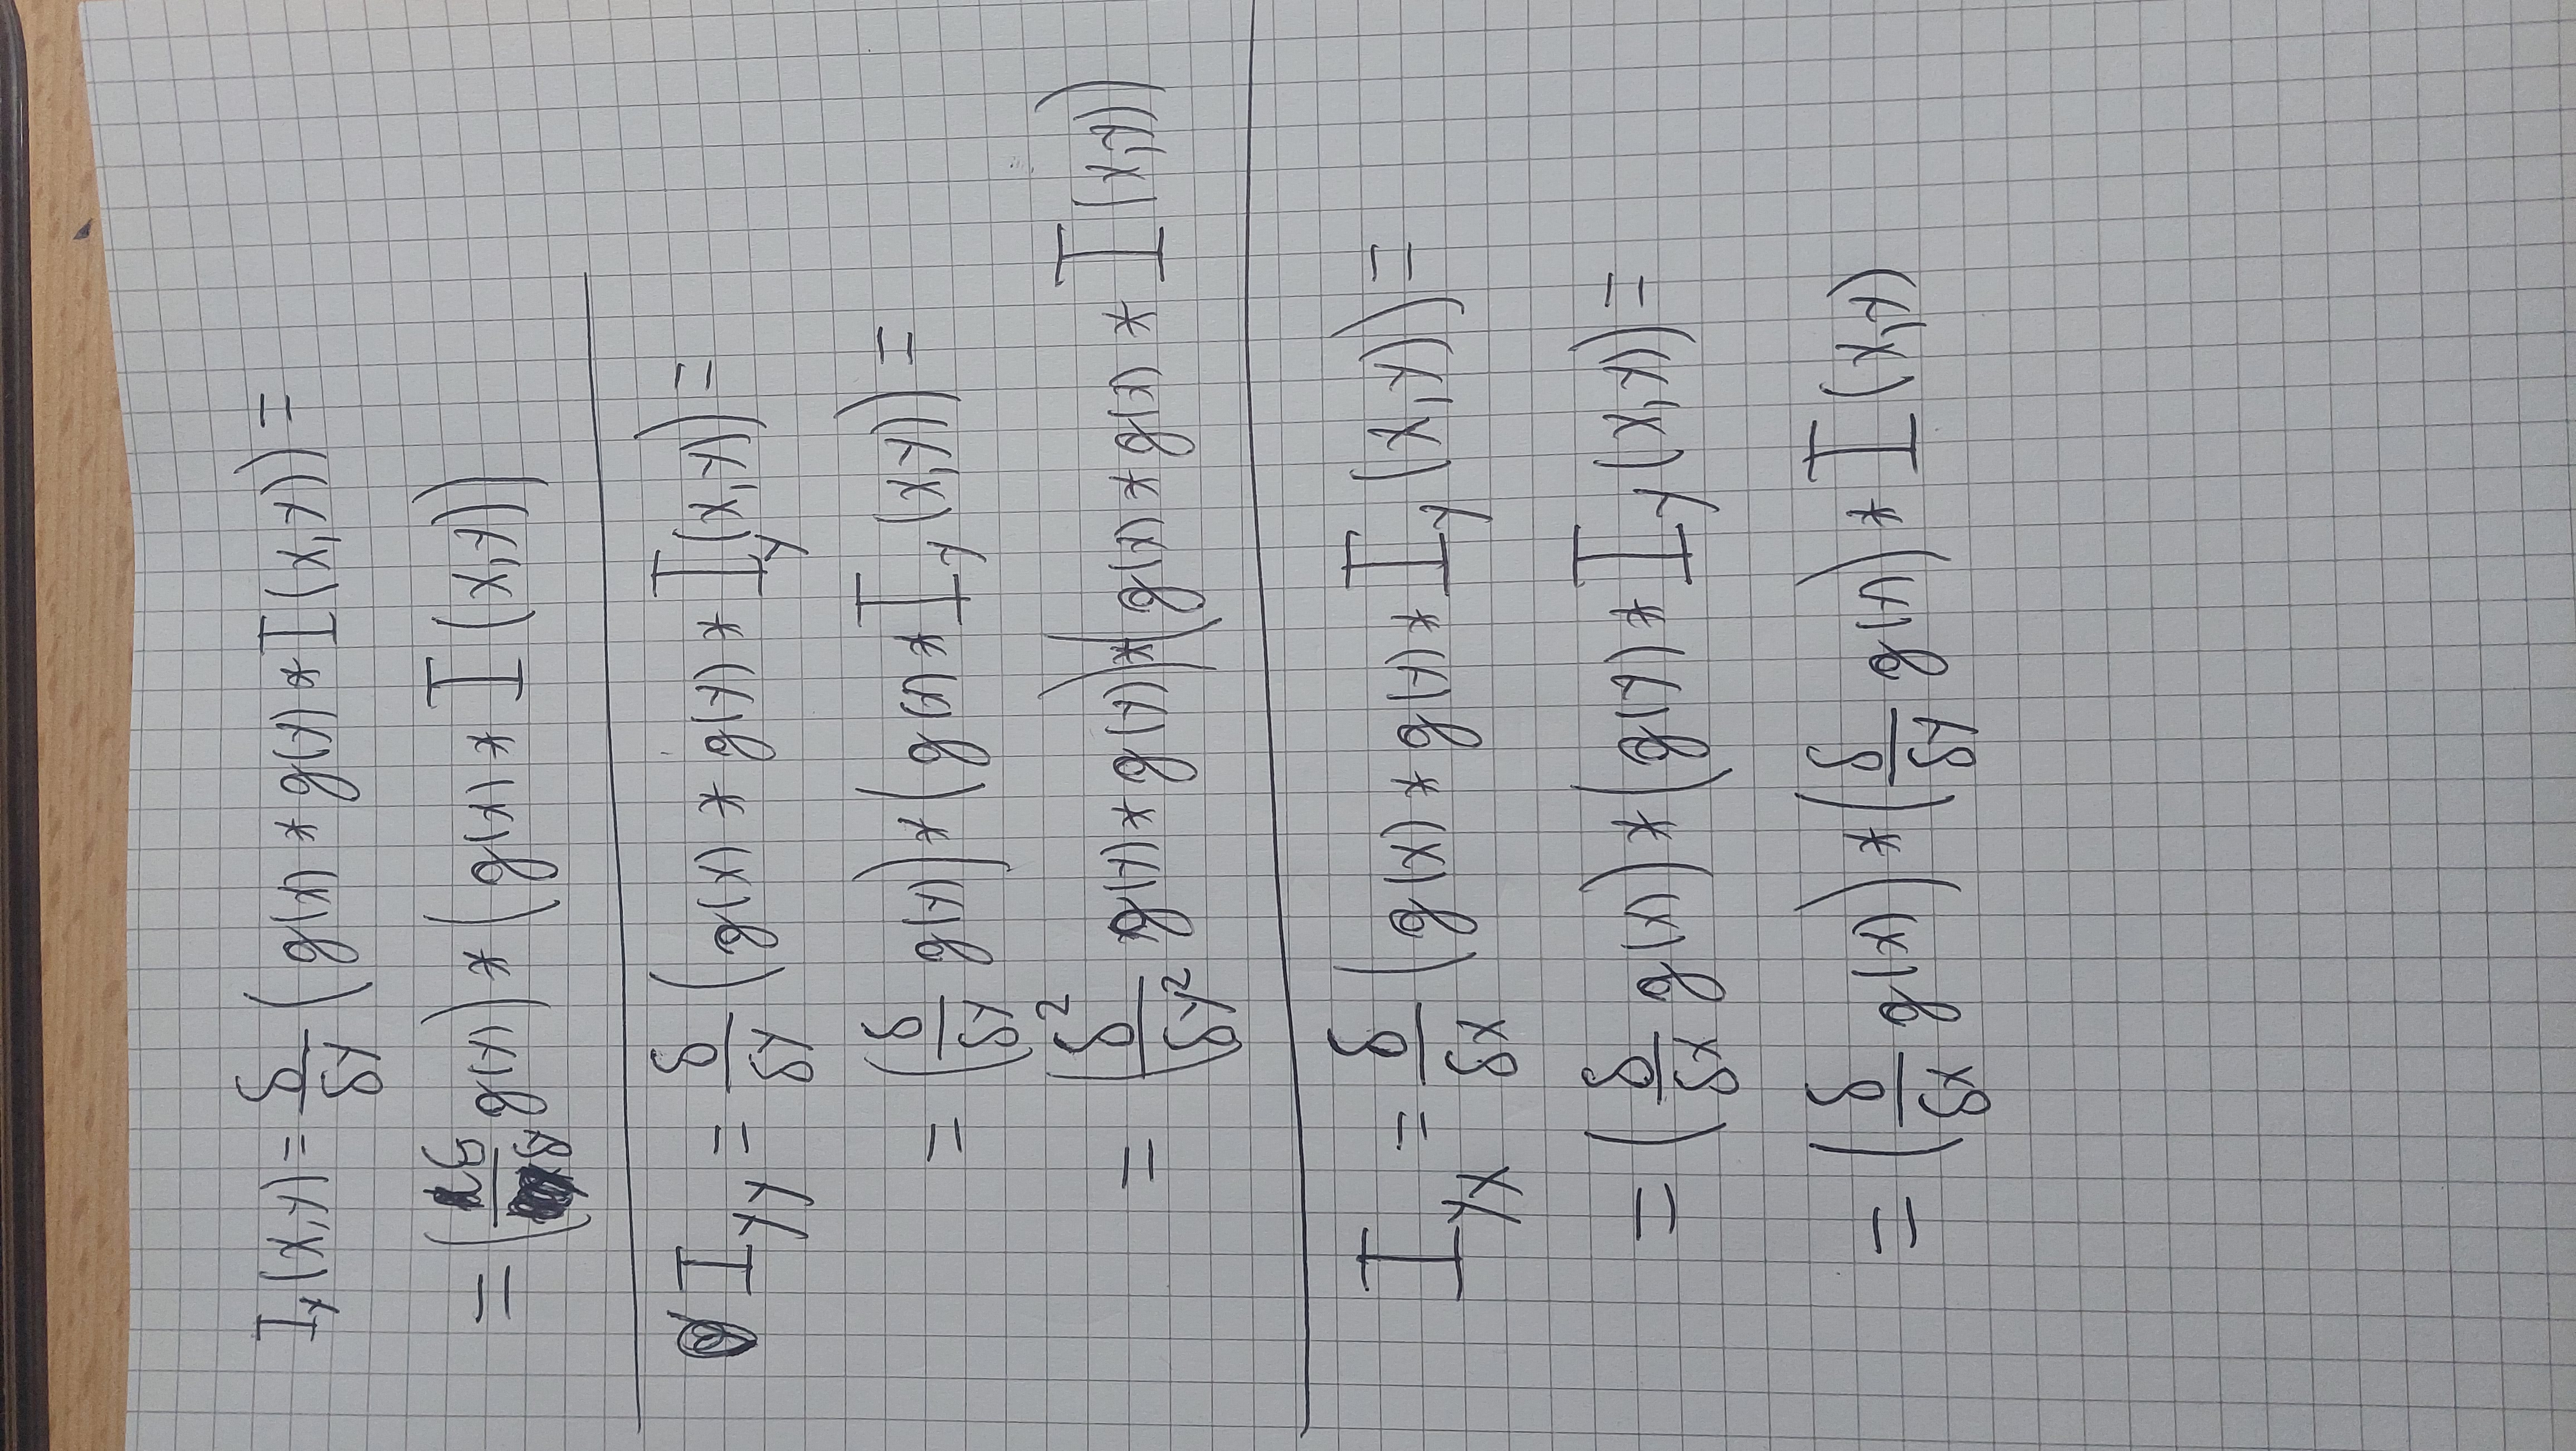 I_y(x,y) = δ/δy (g(x) * g(y) * I(x,y)) =
= (δ/δ g(y)) * (g(x) * I(x,y))
I_yy = δ/δy (g(x) * g(y) * I_y(x,y)) =
= (δ/δy g(y)) * (g(x) * I_y(x,y)) =
= (δ²/δy² g(y) * g(y)) * (g(x) * g(x) * I(x,y))
I_yx = δ/δx (g(x) * g(y) * I_y(x,y)) =
= (δ/δx g(x)) * (g(y) * I_y(x,y)) =
= (δ/δx g(x)) * (δ/δy g(y)) * I(x,y)